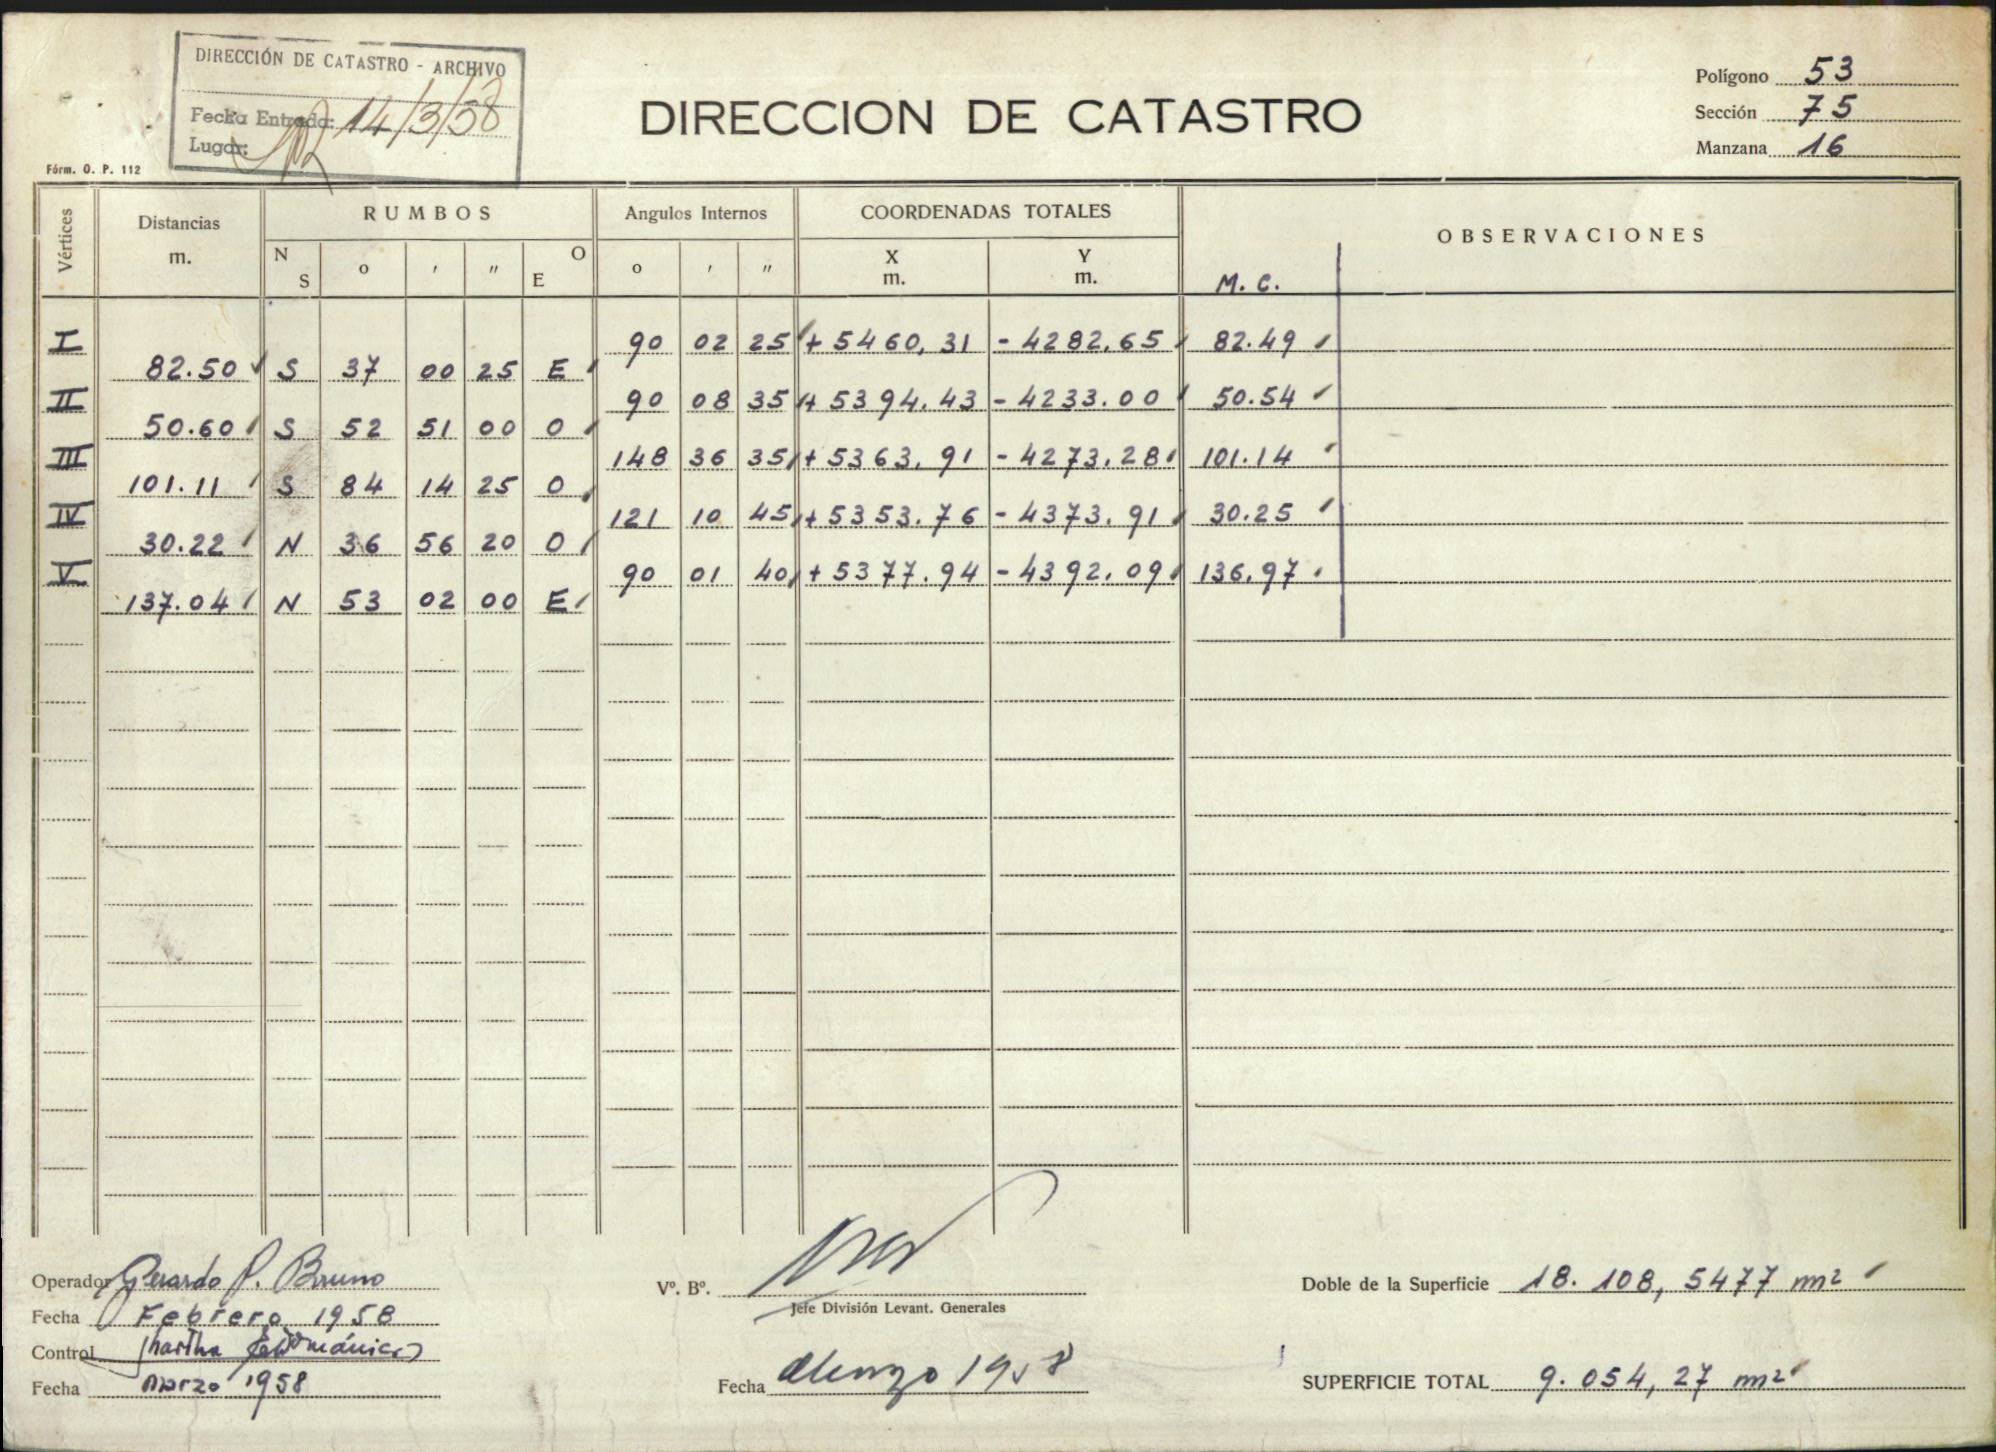 DIRECCIÓN DE CATASTRO - ARCHIVO
Fecha Entrada: 14/3/58
Lugar:
Fórm. O. P. 112
DIRECCION DE CATASTRO
Polígono 53
Sección 75
Manzana 16
Vértices Distancias m. RUMBOS Angulos Internos COORDENADAS TOTALES OBSERVACIONES
N S o ' " O E o ' " X m. Y m. M. C.
I 90 02 25 + 5460,31 - 4282.65 82.49
82.50 S 37 00 25 E
II 90 08 35 + 5394.43 - 4233.00 50.54
50.60 S 52 51 00 O
III 148 36 35 + 5363.91 - 4273.28 101.14
101.11 S 84 14 25 O
IV 121 10 45 + 5353.76 - 4373.91 30.25
30.22 N 36 56 20 O
V 90 01 40 + 5377.94 - 4392.09 136.97
137.04 N 53 02 00 E
Operador Gerardo P. Bruno
Fecha Febrero 1958
Control
Fecha marzo 1958
Vº. Bº.
Jefe División Levant. Generales
Fecha 1958
Doble de la Superficie 18.108,5477 m2
SUPERFICIE TOTAL 9.054,27 m2